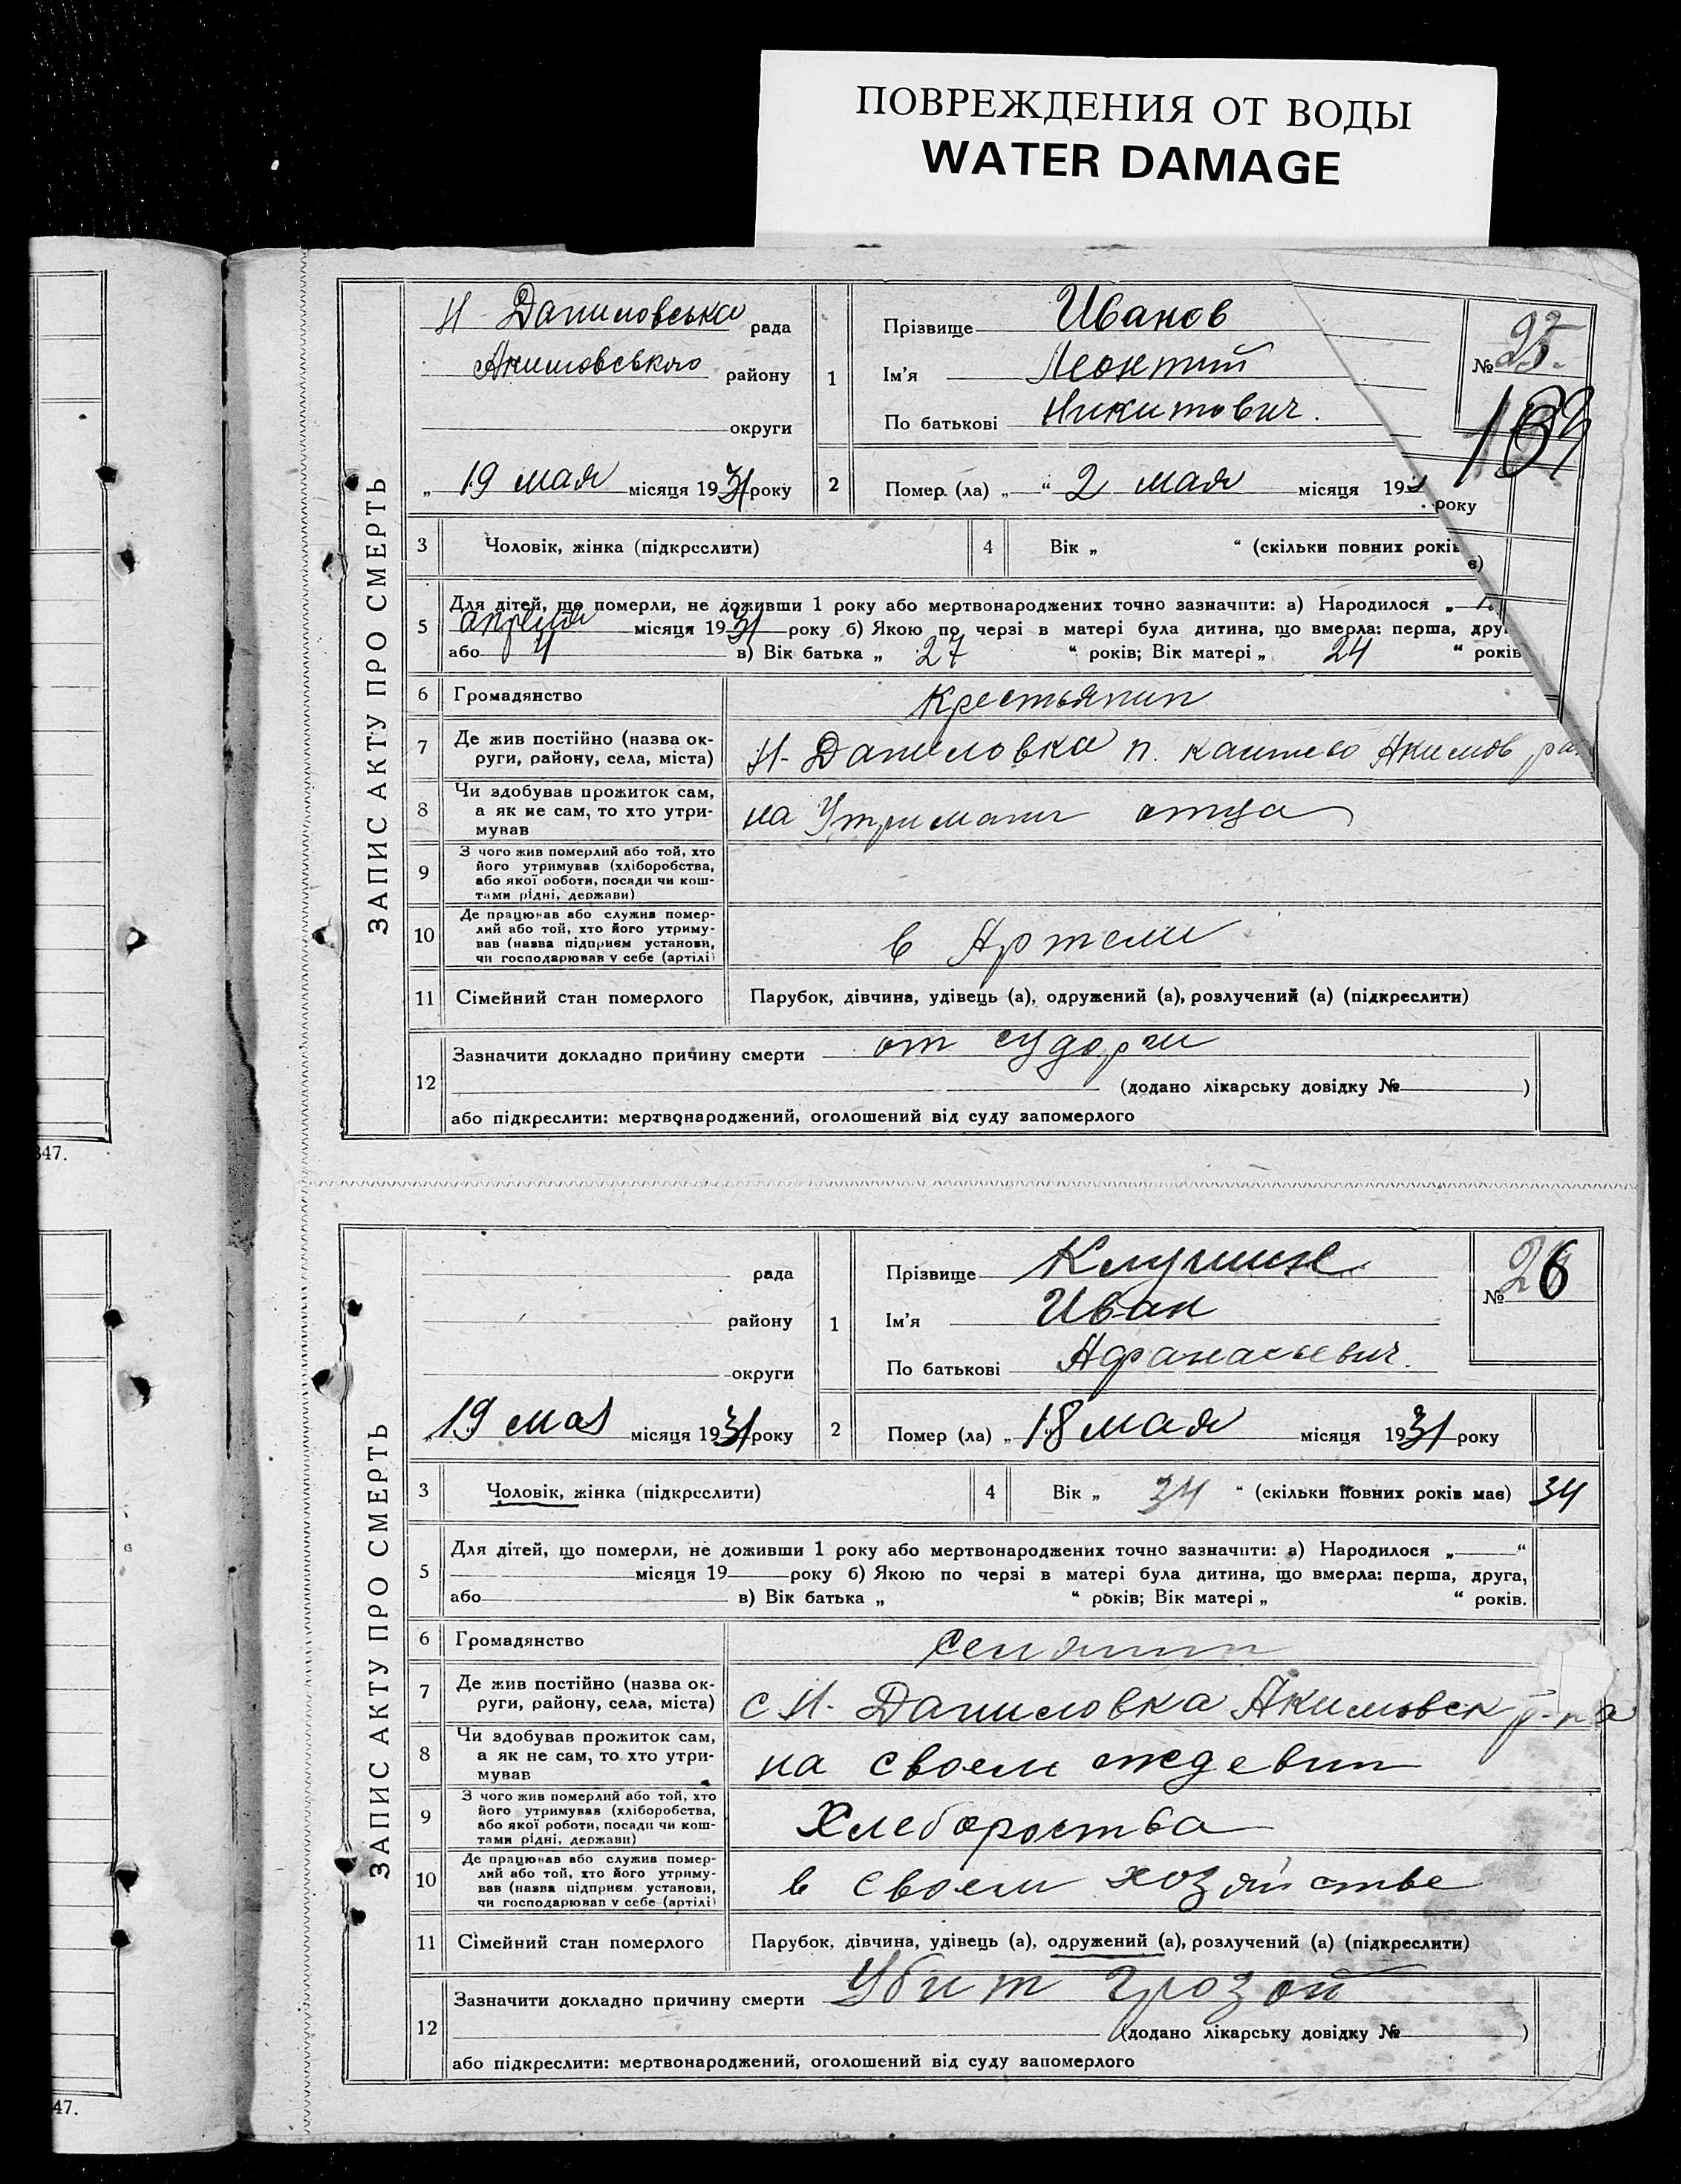 ПОВРЕЖДЕНИЯ ОТ ВОДЫ
WATER DAMAGE
ЗАПИС АКТУ ПРО СМЕРТЬ
Н-Даниловська рада
Акимовського району
округи
„ 19 мая місяця 1931 року
1
Прізвище Иванов
Ім'я Леонтий
По батькові Никитович.
№ 25
2 Помер. (ла) „ “ 2 мая місяця 19 року
3 Чоловік, жінка (підкреслити)
4 Вік „ “ (скільки повних років
5 Для дітей, що померли, не доживши 1 року або мертвонароджених точно зазначити: а) Народилося „
апреля місяця 1931 року б) Якою по черзі в матері була дитина, що вмерла: перша,
або 4 в) Вік батька „ 27 “ років; Вік матері „ 24 “ років
6 Громадянство Крестьянин
7 Де жив постійно (назва ок-
руги, району, села, міста) Н-Даниловка Акимов
8 Чи здобував прожиток сам,
а як не сам, то хто утри-
мував на Утримани отца
9 З чого жив померлий або той, хто
його утримував (хліборобства,
або якої роботи, посади чи кош-
тами рідні, держави)
10 Де працював або служив помер-
лий або той, хто його утриму-
вав (назва підприєм установи,
чи господарював у себе (артілі) в Артели
11 Сімейний стан померлого Парубок, дівчина, удівець (а), одружений (а), розлучений (а) (підкреслити)
12 Зазначити докладно причину смерти от судорги
(додано лікарську довідку № )
або підкреслити: мертвонароджений, оголошений від суду запомерлого
347.
ЗАПИС АКТУ ПРО СМЕРТЬ
рада
району
округи
„ 19 мая місяця 1931 року
1
Прізвище Клушин
Ім'я Иван
По батькові Афанасьевич.
№ 26
2 Помер (ла) „ 18 мая місяця 1931 року
3 Чоловік, жінка (підкреслити)
4 Вік „ 34 “ (скільки повних років має) 34
5 Для дітей, що померли, не доживши 1 року або мертвонароджених точно зазначити: а) Народилося „ “
місяця 19 року б) Якою по черзі в матері була дитина, що вмерла: перша, друга,
або в) Вік батька „ “ років; Вік матері „ “ років.
6 Громадянство Селянин
7 Де жив постійно (назва ок-
руги, району, села, міста) с Н-Даниловка Акимовск р-на
8 Чи здобував прожиток сам,
а як не сам, то хто утри-
мував на своем иждевин
9 З чого жив померлий або той, хто
його утримував (хліборобства,
або якої роботи, посади чи кош-
тами рідні, держави) Хлебороства
10 Де працював або служив помер-
лий або той, хто його утриму-
вав (назва підприєм. установи,
чи господарював у себе (артілі) в своем хозяйстве
11 Сімейний стан померлого Парубок, дівчина, удівець (а), одружений (а), розлучений (а) (підкреслити)
12 Зазначити докладно причину смерти Убит грозой
(додано лікарську довідку № )
або підкреслити: мертвонароджений, оголошений від суду запомерлого
47.